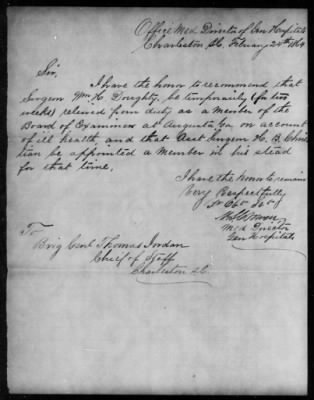 Office Med Director of Gen Hospitals
Charleston SC, February 20th 1864
Sir,
I have the honor to recommend that
Surgeon Wm H. Doughty, be temporarily (for two
weeks) relieved from duty as a member of the
Board of Examiners at Augusta Ga on account
of ill health, and that Asst Surgeon H. B.
be appointed a member in his stead
for that time.
I have the honor to remain
Very Respectfully
Yr Obt Svt
Med Director
Gen Hospitals
To
Brig Genl Thomas Jordan
Chief of Staff
Charleston SC